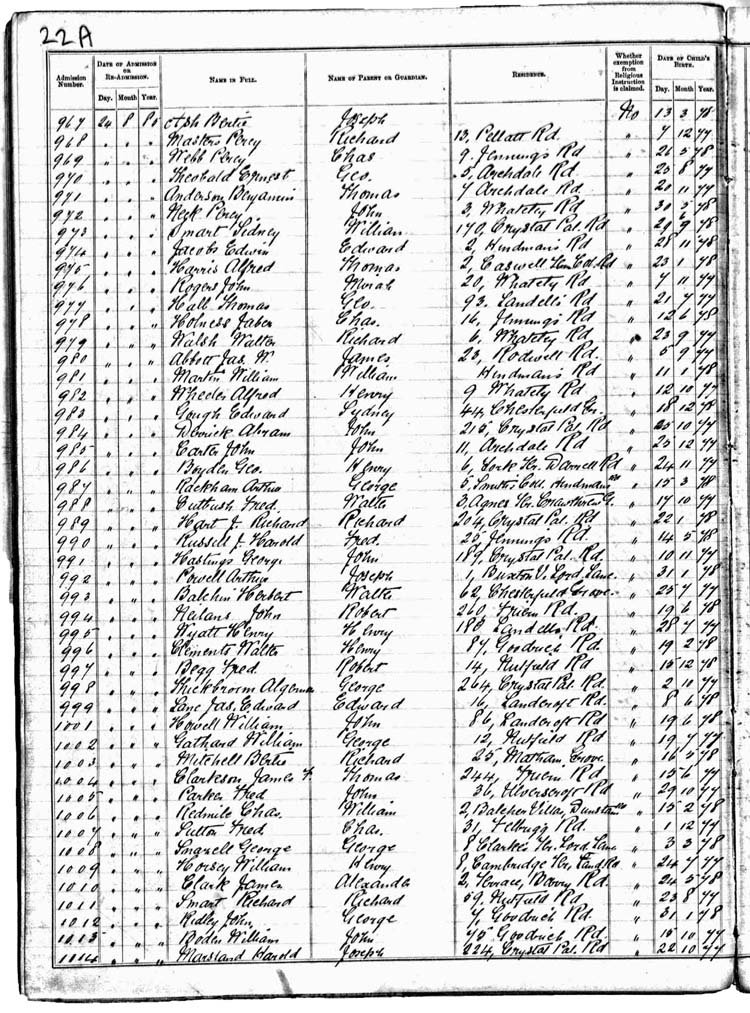 22A
Admission Number. DATE OF ADMISSION OR RE-ADMISSION. Day. Month Year. NAME IN FULL. NAME OF PARENT OR GUARDIAN. RESIDENCE. Whether exemption from Religious Instruction is claimed. DATE OF CHILD'S BIRTH. Day. Month Year.
967 24 8 85 Ash Bertie Joseph No 13 3 78
968 " " " Masters Percy Richard 13, Pellatt Rd " 7 12 77
969 " " " Webb Percy Chas 9. Jennings Rd " 26 5 78
970 " " " Theobald Ernest Geo. 5, Archdale Rd " 23 8 77
971 " " " Anderson Benjamin Thomas 7 Archdale Rd " 20 11 77
972 " " " Neck Percy John 3, Whately Rd " 30 5 78
973 " " " Smart Sidney William 170, Crystal Pal. Rd " 29 9 78
974 " " " Jacobs Edwin Edward 2, Hindman's Rd " 28 11 78
975 " " " Harris Alfred Thomas 2, Caswell Rd " 23 78
976 " " " Rogers John 20, Whately Rd " 7 11 77
977 " " " Hall Thomas Geo. 93. Landells Rd " 21 7 77
978 " " " Holness Jabez Chas. 16, Jennings Rd " 12 6 78
979 " " " Walsh Walter Richard 6, Whately Rd " 23 9 77
980 " " " Abbott Jas. W James 23, Rodwell Rd. " 5 9 77
981 " " " Martin William William Hindman's Rd " 11 1 78
982 " " " Wheeler Alfred Henry 9 Whately Rd " 12 10 77
983 " " " Gough Edward Sydney 44, Chesterfield Gr. " 18 12 78
984 " " " Derrick Abram John 215, Crystal Pal. Rd " 23 10 77
985 " " " Carter John John 11, Archdale Rd " 23 12 77
986 " " " Boyden Geo. Henry 6, York Ter. Darrell Rd " 24 11 77
987 " " " Rackham Arthur George 5. Smiths Cott. Hindmans " 15 3 78
988 " " " Cutbush Fred. Walter 3, Agnes Ter. " 17 10 77
989 " " " Hart J. Richard Richard 204, Crystal Pal. Rd " 22 1 78
990 " " " Russell J. Harold Fred. 25, Jennings Rd. " 14 5 78
991 " " " Hastings George John 189, Crystal Pal. Rd " 10 11 77
992 " " " Powell Arthur Joseph 1, Buxton V. Lord. Lane. " 31 1 78
993 " " " Balchin Herbert Walter 62, Chesterfield Grove. " 23 7 77
994 " " " Heiland John Robert 260, Friern Rd. " 19 6 78
995 " " " Wyatt Henry Henry 183 Landells Rd. " 28 7 77
996 " " " Clements Walter Henry 87, Goodrich Rd " 19 2 78
997 " " " Begg Fred. Robert 14, Nutfield Rd " 15 12 78
998 " " " Thickbroom Algernon George 264, Crystal Pal. Rd " 2 10 77
999 " " " Lane Jas. Edward Edward 16, Landcroft Rd " 8 6 78
1001 " " " Howell William John 86, Landcroft Rd " 19 6 78
1002 " " " Gathard William George 12, Nutfield Rd " 19 7 77
1003 " " " Mitchell Bertie Richard 25, Matham Grove. " 16 5 78
1004 " " " Clarkeson James F. Thomas 244, Friern Rd " 15 6 77
1005 " " " Parker Fred John 36, Ulverscroft Rd " 29 10 77
1006 " " " Redmile Chas. William 2, Balcher Villas, Dunstans " 15 2 78
1007 " " " Sutton Fred Chas. 31, Felbrigg Rd. " 1 12 77
1008 " " " George George 8 Clarke's Ter. Lord. Lane " 3 3 78
1009 " " " Horsey William Henry 8, Cambridge Ter. Rd " 24 7 77
1010 " " " Clark James Alexander 2, Terrace, Barry Rd. " 24 5 78
1011 " " " Smart Richard Richard 59, Nutfield Rd " 23 8 77
1012 " " " Ridley John, George 7, Goodrich Rd. " 31 1 78
1013 " " " Boden William John 75 Goodrich Rd " 15 10 77
1014 " " " Marsland Harold Joseph 224, Crystal Pal. Rd " 22 10 77